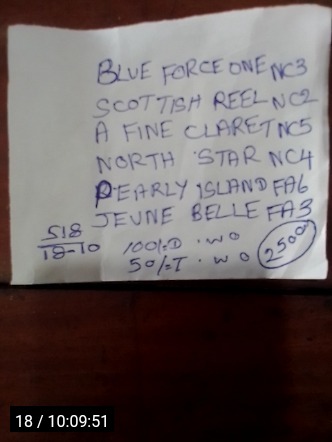 BLUE FORCE ONE NC3
SCOTTISH REEL NC2
A FINE CLARET NC5
NORTH STAR NC4
PEARLY ISLAND FA6
JEUNE BELLE FA3
518
18-10
100/.D . W O
50/.T . W O
2500/
18 / 10:09:51